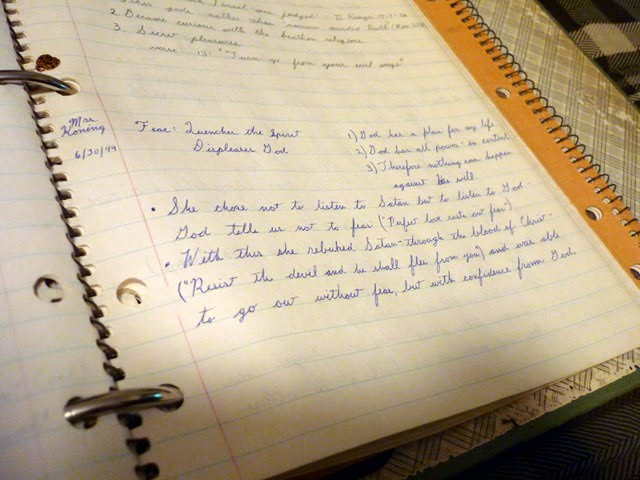 I Israel was judged II Kings 17:7-13
2. Became curious with the heathen religions
3. Secret pleasures
verse 13: "Turn ye from your evil ways"
Mrs.
Koning
6/30/99
Fear: Quenches the Spirit
Displeases God
1) God has a plan for my life
2) God has all power - in control
3) Therefore nothing can happen
against His will.
• She chose not to listen to Satan but to listen to God -
God tells us not to fear ("Perfect love casts out fear")
• With this she rebuked Satan - through the blood of Christ -
("Resist the devil and he shall flee from you") and was able
to go on without fear, but with confidence from God.